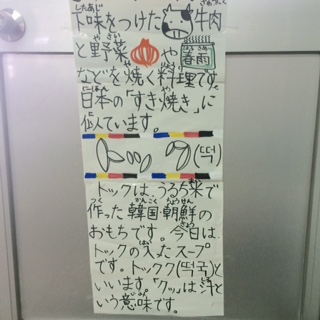 下味をつけた牛肉
と野菜や春雨
などを焼く料理です
日本の「すき焼き」に
似ています。
トック(떡)
トックは、うるち米で
作った韓国朝鮮の
おもちです。今日は、
トックの入ったスープ
です。トックク(떡국)と
いいます。「クッ」は汁と
いう意味です。